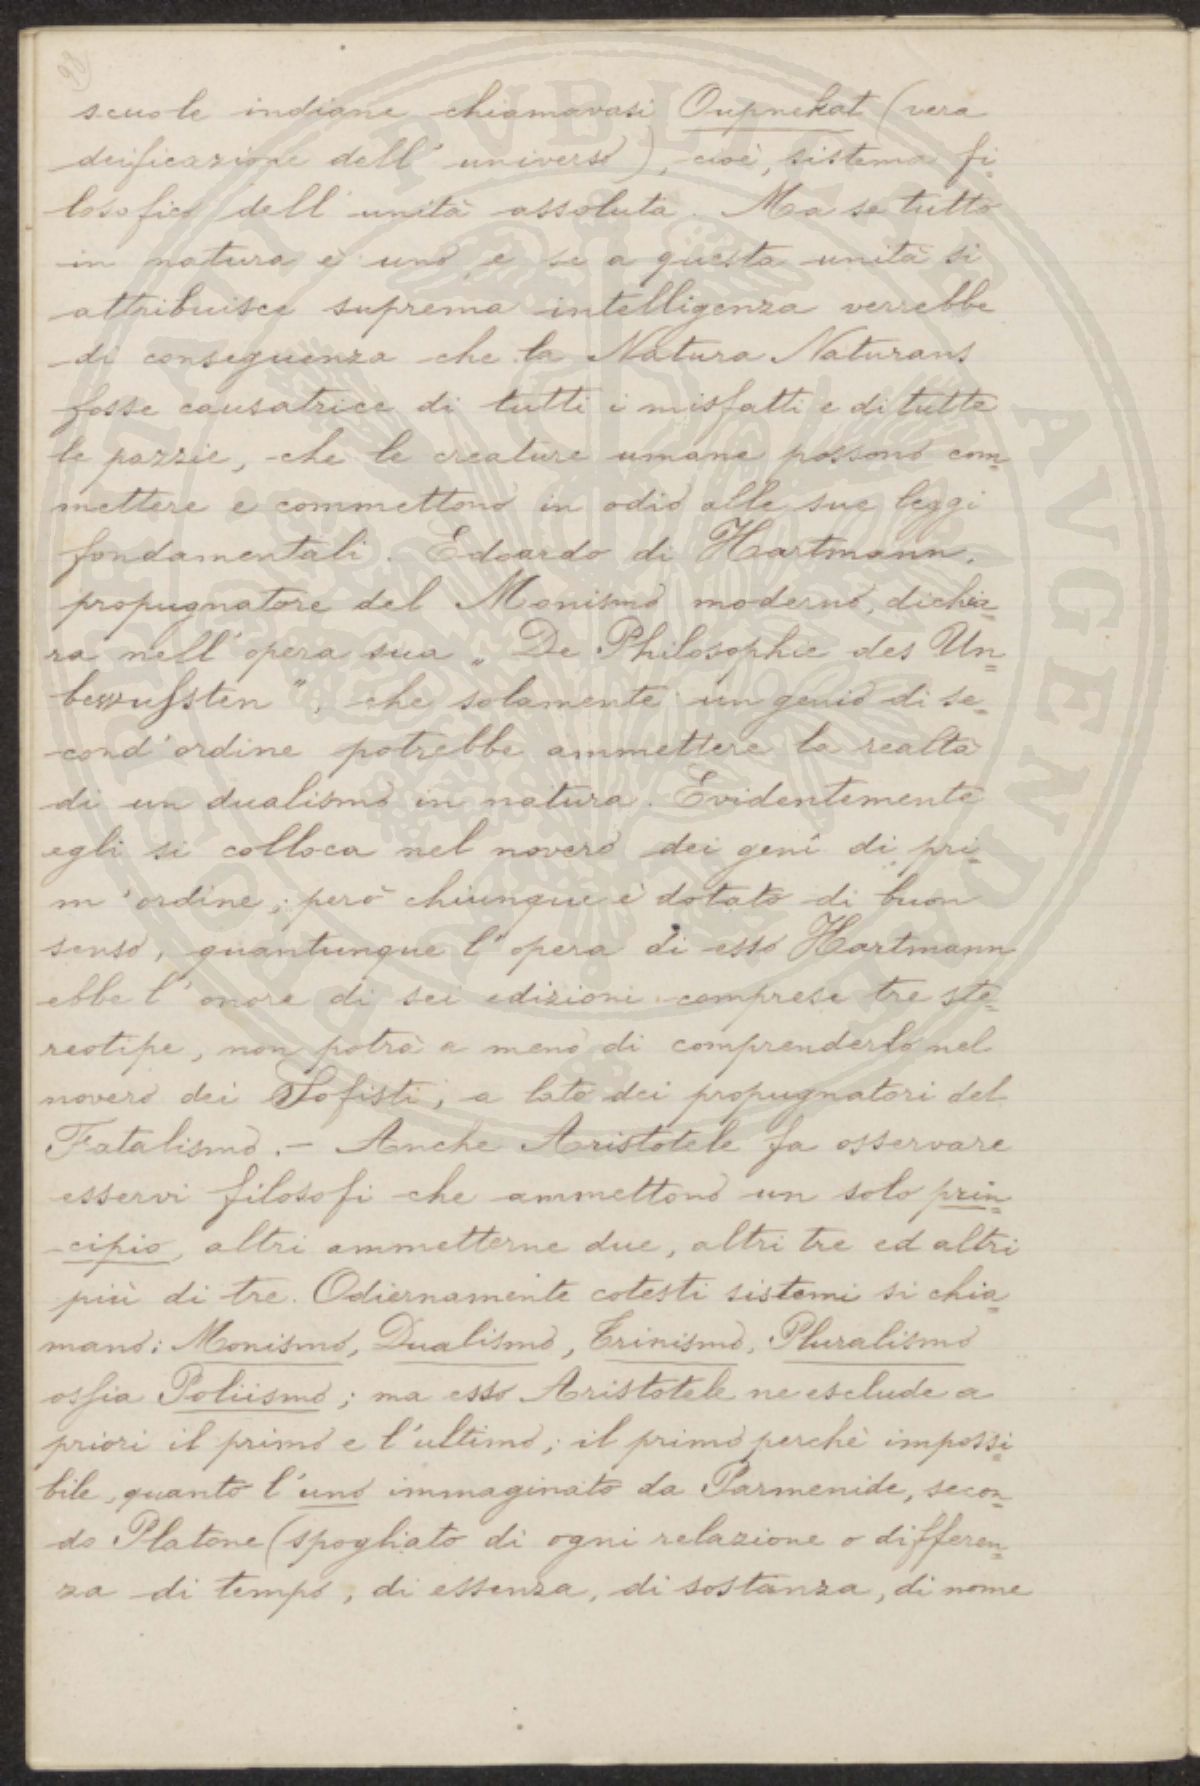 98
scuole indiane chiamavasi Oupnekat (vera
deificazione dell' universo), cioè, sistema fi=
losofico dell' unità assoluta. Ma se tutto
in natura è uno e se a questa unità si
attribuisce suprema intelligenza verrebbe
di conseguenza che la Natura Naturans
fosse causatrice di tutti i misfatti e di tutte
le pazzie, che le creature umane possono com=
mettere e commettono in odio alle sue leggi
fondamentali. Edoardo di Hartmann,
propugnatore del Monismo moderno, dichia=
ra nell' opera sua „ De Philosophie des Un=
bewußten ", che solamente un genio di se=
cond' ordine potrebbe ammettere la realtà
di un dualismo in natura. Evidentemente
egli si colloca nel novero dei genî di pri=
m' ordine; però chiunque è dotato di buon
senso, quantunque l' opera di esso Hartmann
ebbe l' onore di sei edizioni comprese tre ste=
reotipe, non potrà a meno di comprenderlo nel
novero dei Sofisti, a lato dei propugnatori del
Fatalismo. – Anche Aristotele fa osservare
esservi filosofi che ammettono un solo prin=
cipio, altri ammetterne due, altri tre ed altri
più di tre. Odiernamente cotesti sistemi si chia=
mano: Monismo, Dualismo, Trinismo, Pluralismo
ossia Poliismo; ma esso Aristotele ne esclude a
priori il primo e l'ultimo; il primo perchè impossi=
bile, quanto l'uno immaginato da Parmenide, secon=
do Platone (spogliato di ogni relazione o differen=
za di tempo, di essenza, di sostanza, di nome